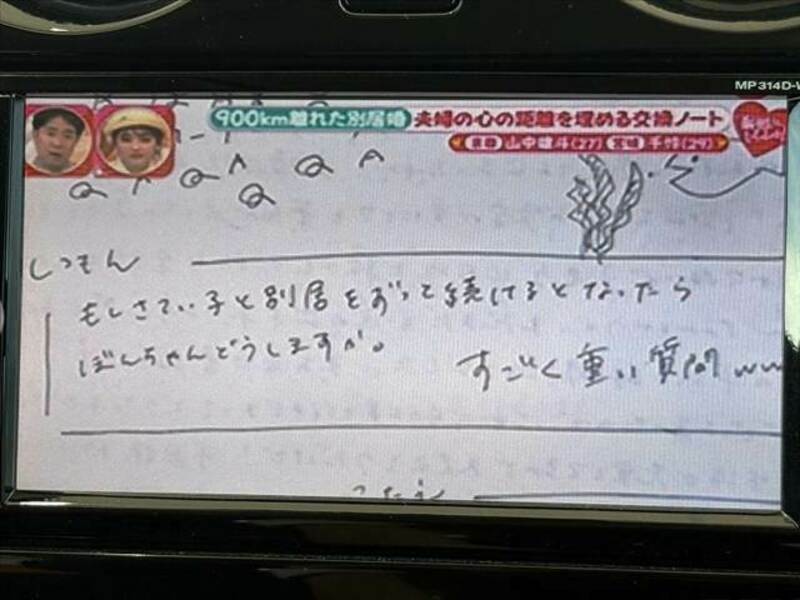 MP314D-W
900km離れた別居婚 夫婦の心の距離を埋める交換ノート
山中雄斗(27) 宮崎 千怜(29)
Q A Q A Q Q A
しつもん
もしさてい子と別居をずっと続けるとなったら
ぼんちゃんどうしますか。
すごく重い質問ww
こたえ